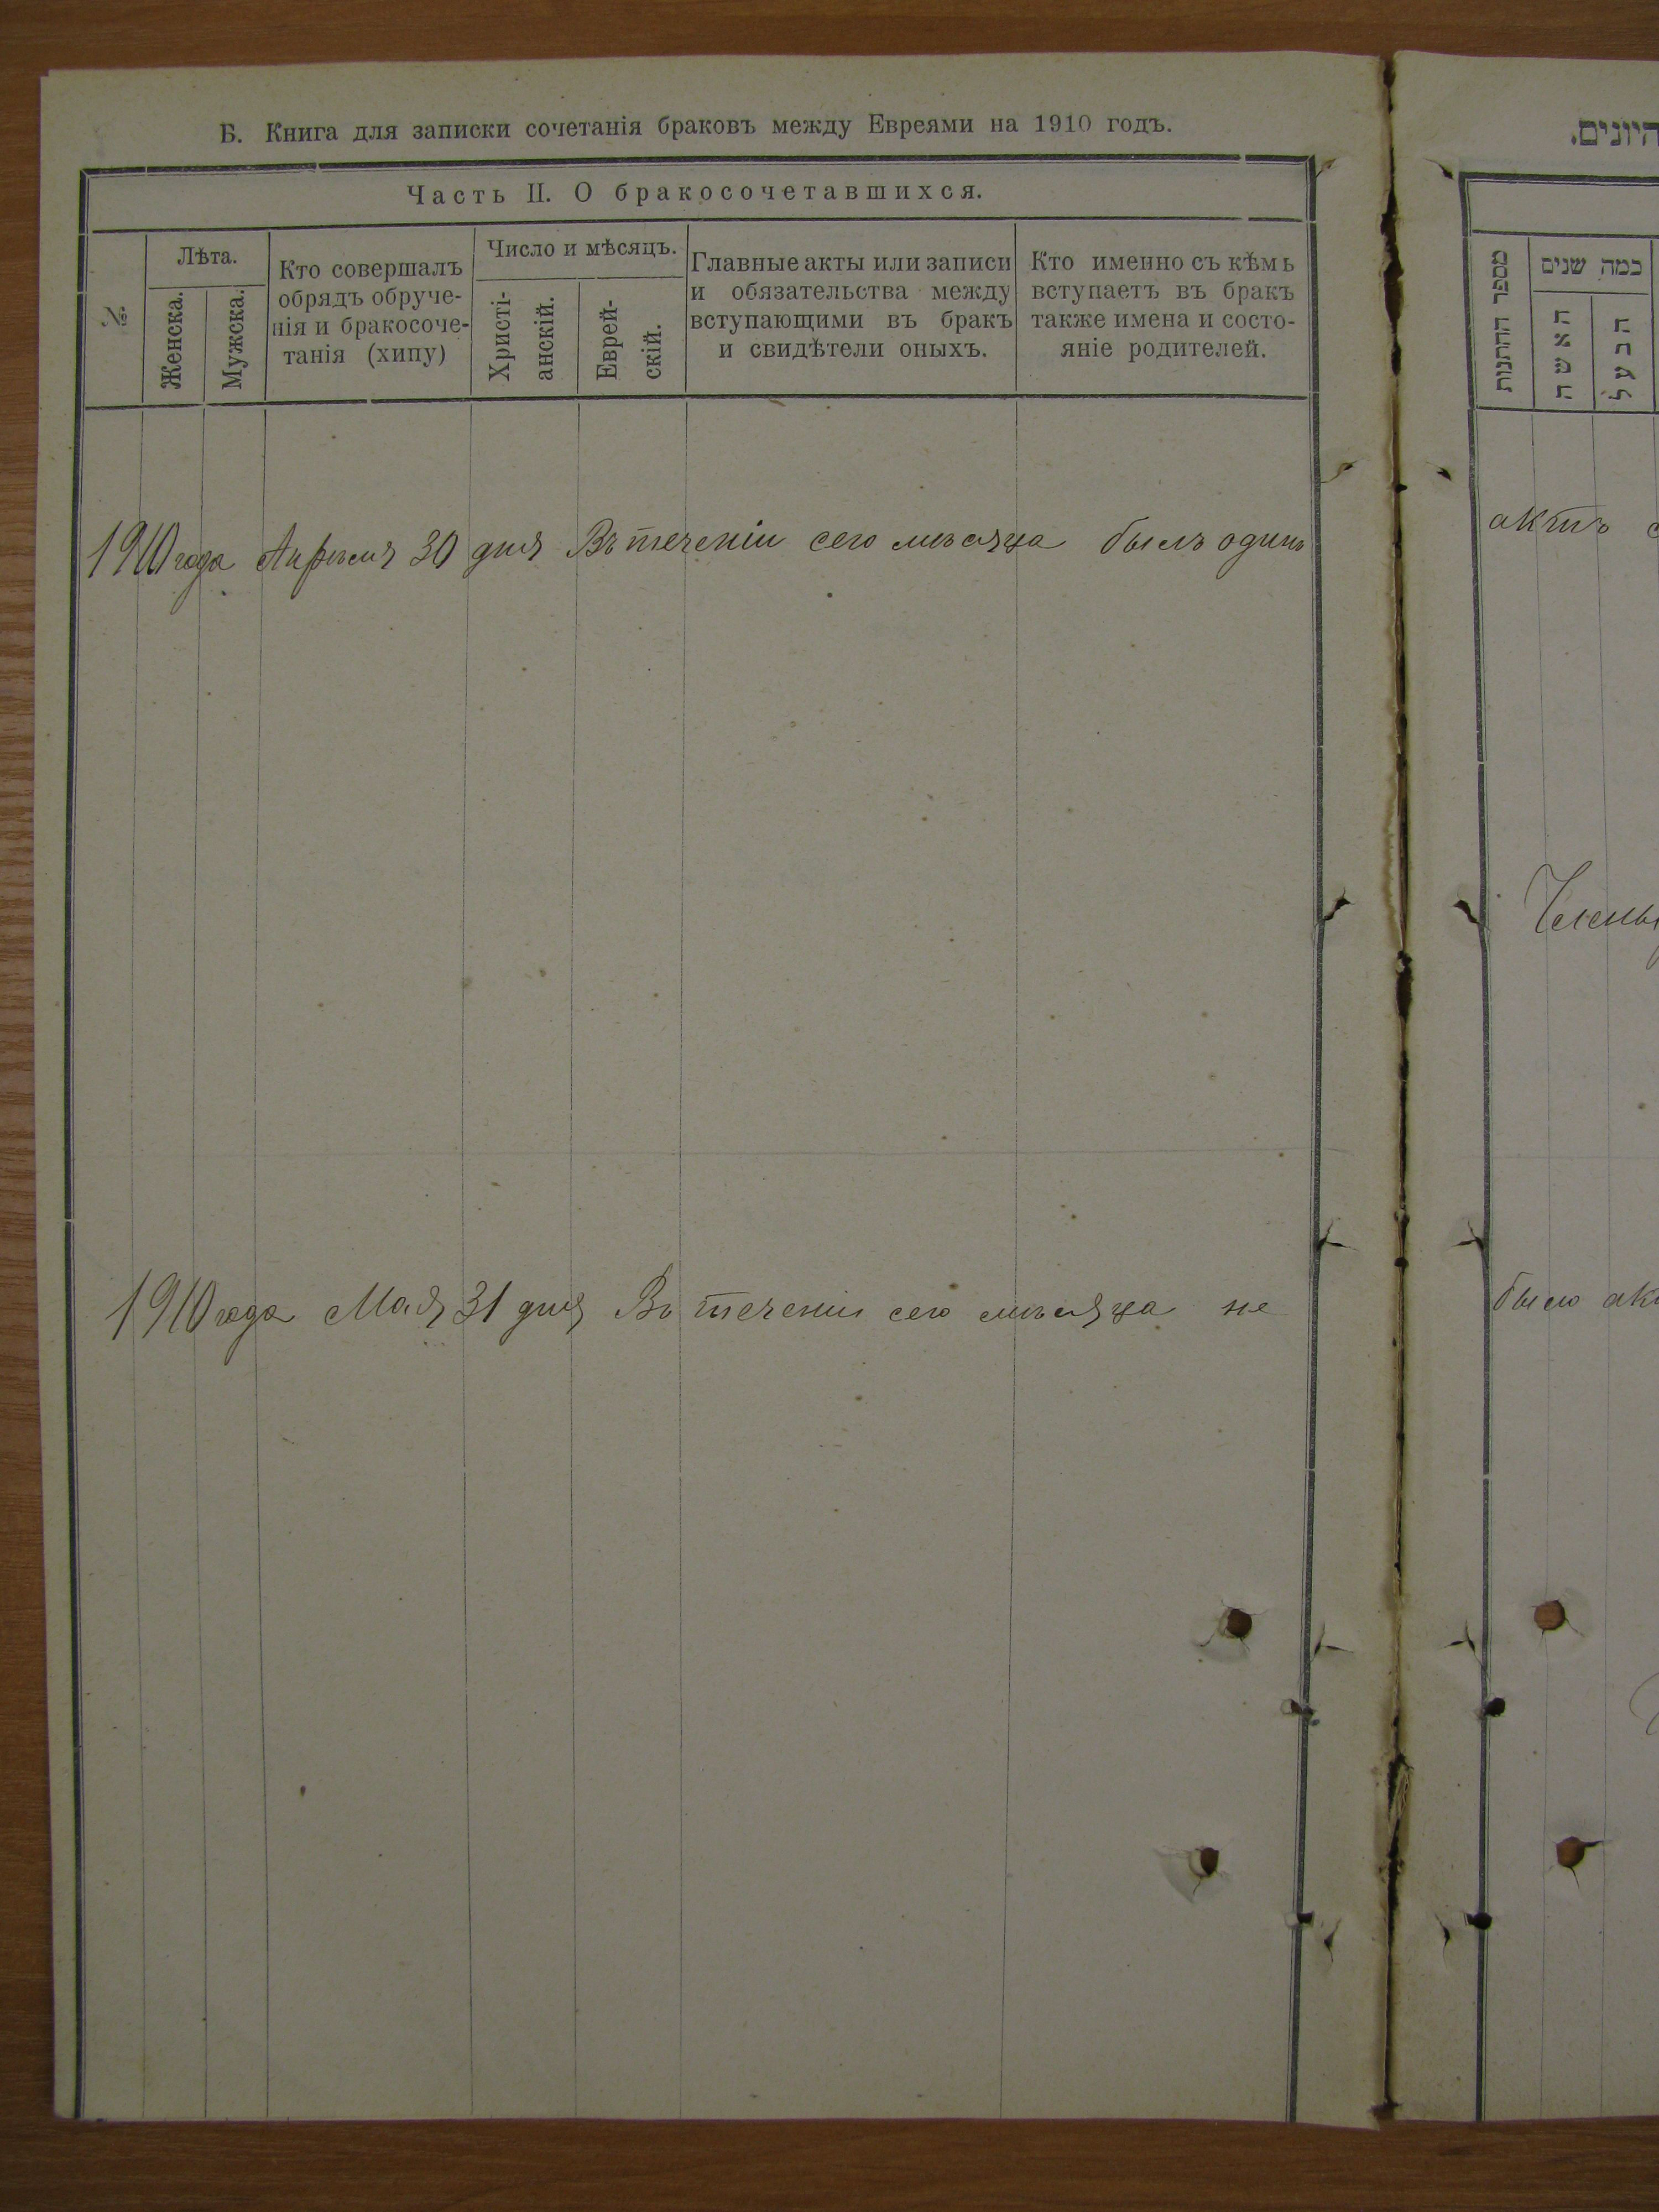 Б. Книга для записки сочетанія браковъ между Евреями на 1910 годъ.
Часть II. О бракосочетавшихся.
№
Лѣта.
Женска.
Мужска.
Кто совершалъ
обрядъ обруче-
нія и бракосоче-
танія (хипу)
Число и мѣсяцъ.
Христі-
анскій.
Еврей-
скій.
Главные акты или записи
и обязательства между
вступающими въ бракъ
и свидѣтели оныхъ.
Кто именно съ кѣмъ
вступаетъ въ бракъ
также имена и состо-
яніе родителей.
1910 года Апрѣля 30 дня Въ теченіи сего мѣсяца былъ одинъ
1910 года Мая 31 дня Въ теченіи сего мѣсяца не
היונים.
מספר החתנות
כמה שנים
האשה
הבעל
актъ
Члены
было